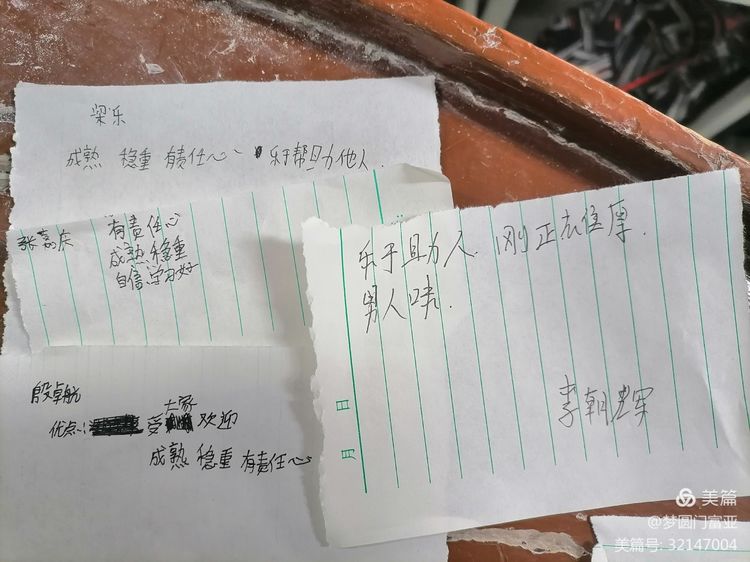 梁乐
成熟 稳重 有责任心 乐于帮助他人.
张嘉庆
有责任心
成熟稳重
自信 学习好
殷卓航
优点: 受大家欢迎
成熟 稳重 有责任心
乐于助人. 刚正
厚.
男人味.
李朝
日
月
美篇
@梦圆门富亚
美篇号: 32147004